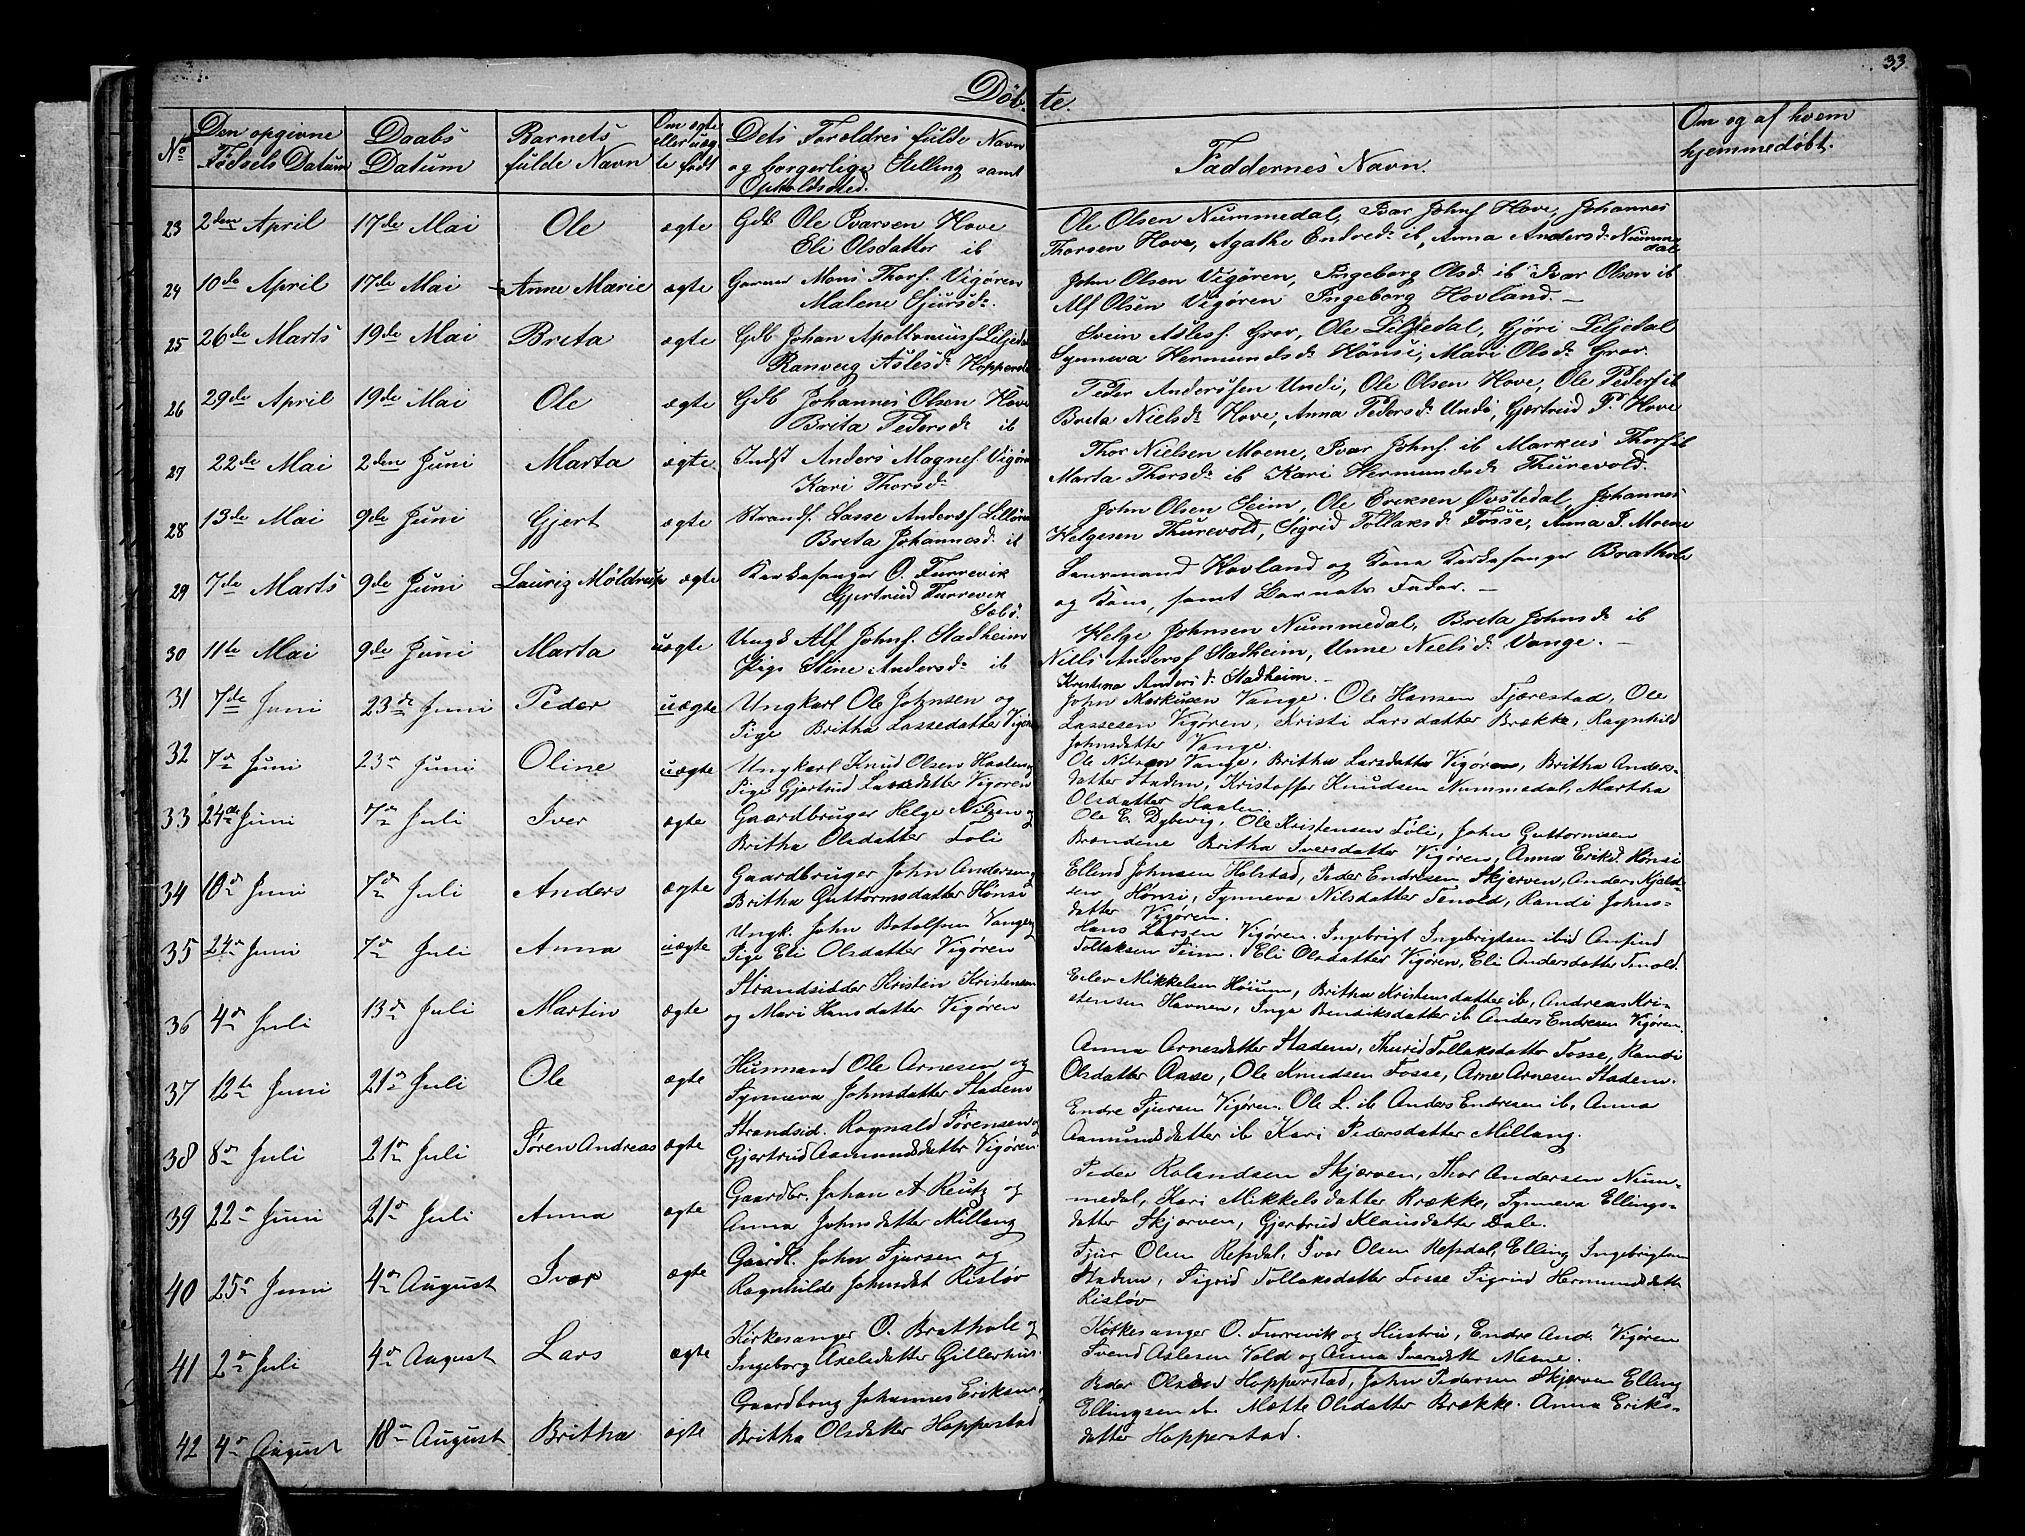 33.
Døb-te.
No
Den opgivne Fødsels Datum
Daabs Datum
Barnets fulde Navn
Om ægte eller uægte født
Dets Forældres fulde Navn og borgerlige Stilling samt Opholdssted.
Faddernes Navn.
Om og af hvem hjemmedøbt.
23 2den April 17de Mai Ole ægte Gdb Ole Ivarsen Hove
Eli Olsdatter ib
Ole Olsen Nummedal, Ivar Johns Hove, Johannes
Thorsen Hove, Agathe Endred. ib, Anna Andersd. Nummedal
24 10de April 17de Mai Anne Marie ægte Garver Mons Thors. Vigøren
Malene Sjursd.
John Olsen Vigøren, Ingeborg Olsd ib Ivar Olsen ib
Alf Olsen Vigøren Ingeborg Hovland. –
25 26de Marts 19de Mai Brita ægte Gdb Johan Apolloniusf Liljedal
Ranveig Aslesd. Hopperstad
Svein Aslesf. Grov, Ole Liljedal, Gjøri Liljedal
Synneva Hermundsd. Hønsi, Mari Olsd. Grov.
26 29de April 19de Mai Ole ægte Gdb Johannes Olsen Hove
Brita Pedersd. ib
Peder Andersen Undi, Ole Olsen Hove, Ole Peders ib
Breta Nielsd. Hove, Anna Pedersd. Undi, Gjertrud P. Hove
27 22de Mai 2den Juni Marta ægte Indst Anders Magnes. Vigøren
Kari Thorsd.
Thor Nielsen Moene, Ivar Johns. ib Markus Thors. ib
Marta Thorsd. ib Kari Hermundsd. Thurevold.
28 13de Mai 9de Juni Gjert ægte Strands. Lasse Andersf Lilløren
Breta Johannesd. ib
John Olsen Seim, Ole Eriksen Øvstedal, Johannes
Helgesen Thurevold, Sigrid Tollaksd. Fosse, Anna J. Moene
29 7de Marts 9de Juni Lauriz Møldrup ægte Kirkesanger O. Turrevik
Gjertrud Turrevik
Lensmand Hovland og Kone Kirkesanger Brathole
og Kone, samt Barnets Fader. –
30 11te Mai 9de Juni Marta uægte Ungk Alf Johns. Stadheim
Pige Stine Andersd. ib
Helge Johnsen Nummedal, Breta Johnsd. ib
Niels Andersf Stadheim, Unne Nielsd. Vange. –
Kristina Andersd. Stadheim. –
31 7de Juni 23de Juni Peder uægte Ungkarl Ole Johnsen og
Pige Britha Lassedatter Vigøren
John Markusen Vange. Ole Hansen Fjærestad, Ole
Lassesen Vigøren, Kristi Larsdatter Brække, Ragnhild
Johnsdatter Vange.
32 7de Juni 23de Juni Oline uægte Ungkarl Knud Olsen Haalen og
Pige Gjertrud Larsdatter Vigøren
Ole Nilsen Vange, Britha Larsdatter Vigøren, Britha Anders-
datter Stadem, Kristoffer Knudsen Nummedal, Martha
Olsdatter Haalen.
33 24de Juni 7de Juli Iver ægte Gaardbruger Helge Nilsen og
Britha Olsdatter Loli
Ole E. Dybevig, Ole Kristensen Loli, John Guttormsen
Brændene Britha Iversdatter Vigøren, Anna Eriksd. Hønsi
34 10de Juni 7de Juli Anders ægte Gaardbruger John Andersen og
Britha Guttormsdatter Hønsi
Ellend Johnsen Holstad, Peder Endresen Skjerven, Anders Kjeld-
sen Hønsi, Synneva Nilsdatter Tenold, Randi Johns-
datter Vigøren.
35 24de Juni 7de Juli Anna uægte Ungk. John Botolfsen Vange og
Pige Eli Olsdatter Vigøren
Hans Larsen Vigøren. Ingebrigt Ingebrigtsen ibid Anfind
Tollaksen Seim. Eli Olsdatter Vigøren, Eli Andersdatter Tenold.
36 4de Juli 13de Juli Martin ægte Strandsidder Kristen Kristensen
og Mari Hansdatter Vigøren
Eilev Mikkelsen Høium, Britha Kristensdatter ib, Andreas Kri-
stensen Havnen, Inga Bendiksdatter ib Anders Endresen Vigøren.
37 12te Juni 21de Juli Ole ægte Husmand Ole Arnesen og
Synneva Johnsdatter Stadem
Anna Arnesdatter Stadem, Thurid Tollaksdatter Fosse, Randi
Olsdatter Aase, Ole Knudsen Fosse, Arne Arnesen Stadem.
38 8de Juli 21de Juli Søren Andreas ægte Strandsid. Ragnald Sørensen og
Gjertrud Aamundsdatter Vigøren
Endre Sjursen Vigøren. Ole L. ib Anders Endresen ib, Anna
Aamundsdatter ib Kari Pedersdatter Millang.
39 22de Juni 21de Juli Anna ægte Gaardbr. Johan A Reutz og
Anna Johnsdatter Millang
Peder Rolandsen Skjærven, Thor Andersen Num-
medal, Kari Mikkelsdatter Brække, Synneva Ellings-
datter Skjærven, Gjertrud Klausdatter Dale.
40 25de Juni 4de August Ivar ægte Gaardb. John Sjursen og
Ragnhilde Johnsdat Risløv
Sjur Olsen Repdal, Ivar Olsen Repsdal, Elling Ingebrigtsen
Stadem, Sigrid Tollaksdatter Fosse Sigrid Hermundsdatt
Risløv
41 2de Juli 4de August Lars ægte Kirkesanger O. Brathole og
Ingeborg Axelsdatter Gillerhus.
Kirkesanger O. Turrevik og Hustru, Endre And. Vigøren
Svend Aslesen Vold og Anna Iversdatt Moene.
42 4de August 18de August Britha ægte Gaardbrug Johannes Eriksen og
Britha Olsdatter Hopperstad
Peder Olsen Hopperstad, John Pedersen Skjerven Elling
Ellingsen ib. Mætte Olsdatter Brække. Anna Eriks-
datter Hopperstad.